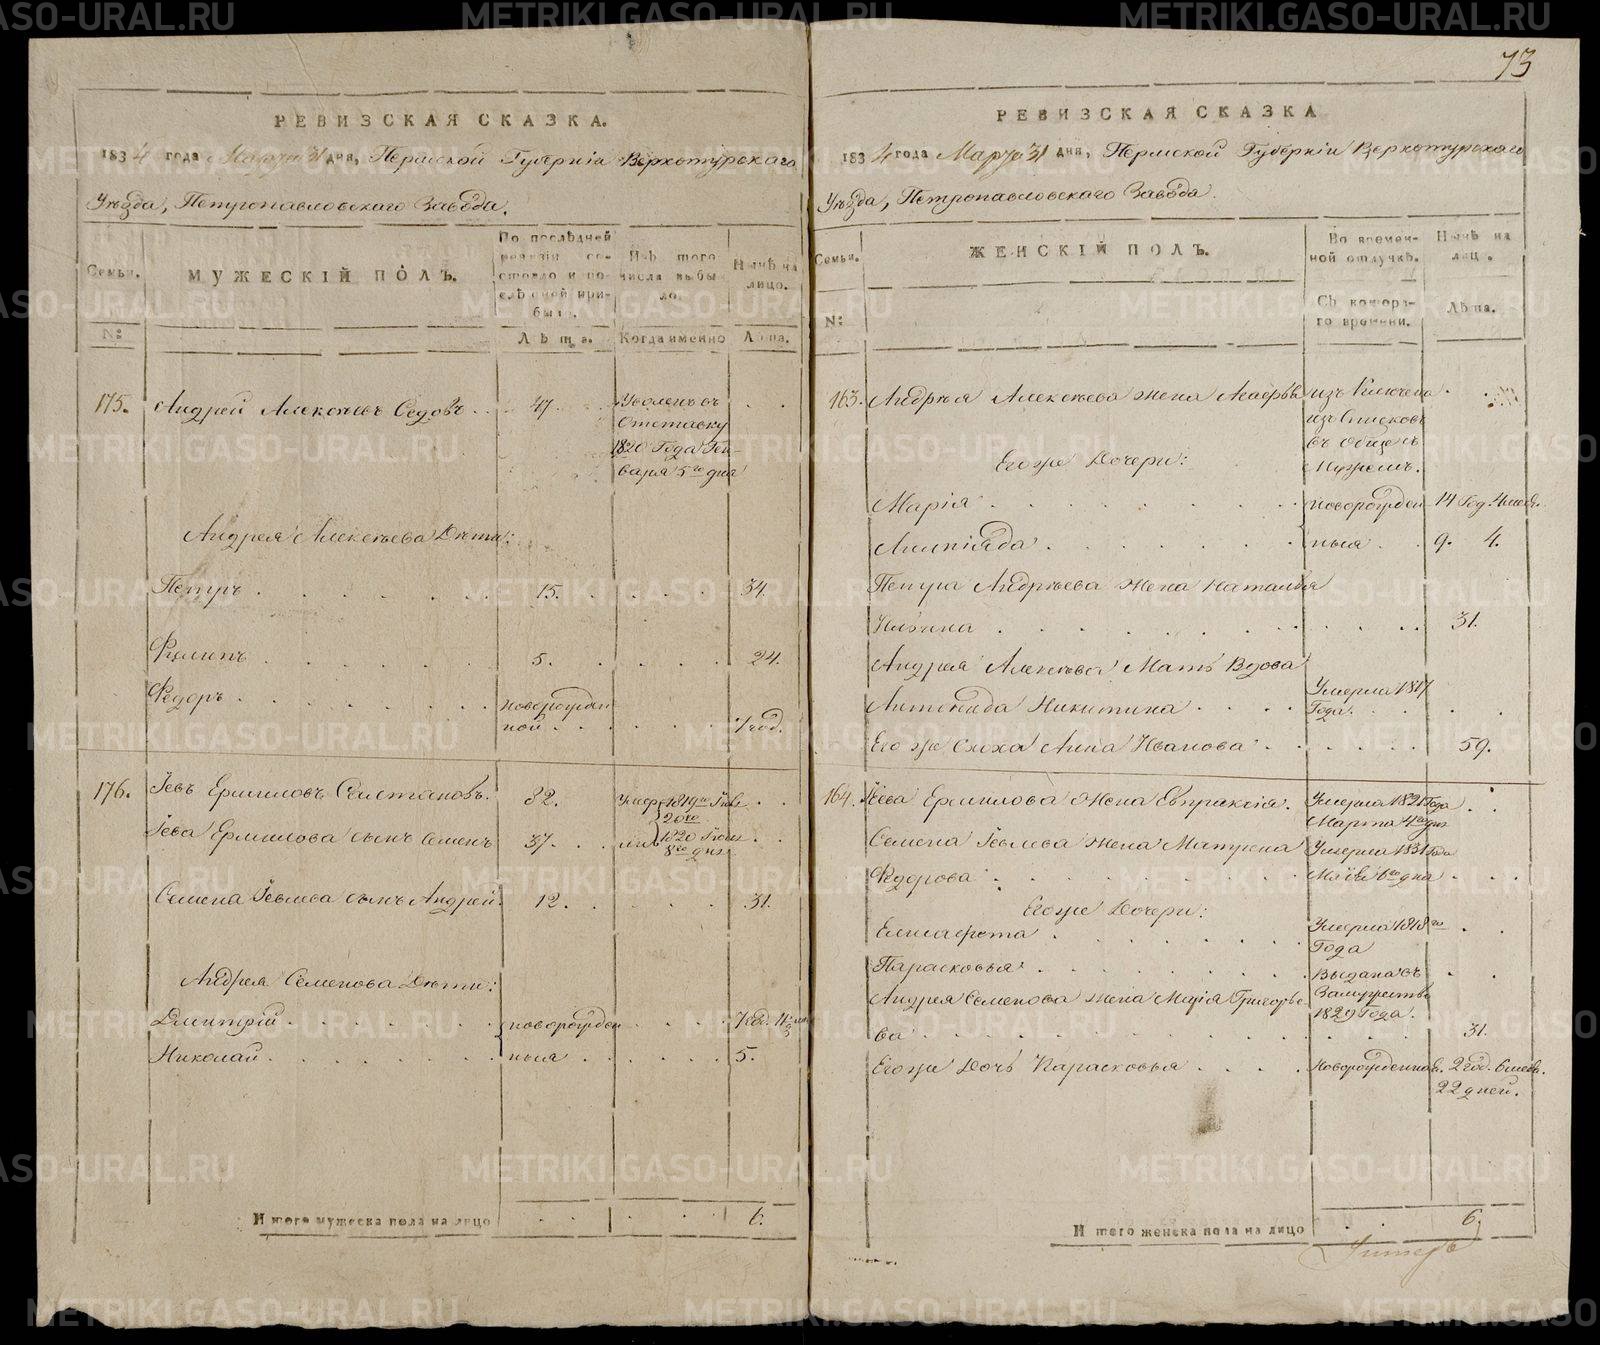 73
РЕВИЗСКАЯ СКАЗКА.
1834 года Марта 31 дня, Пермской Губернiи Верхотурскаго
Уѣзда, Петропавловскаго Завода.
Семьи.
МУЖЕСКІЙ ПОЛЪ.
По послѣдней ревизіи состояло и послѣ оной прибыло.
Изъ того числа выбыло.
Нынѣ на лицо.
№:
Лѣта.
Когда именно
Лѣта.
175. Андрей Алексѣевъ Седовъ . . 47. . Уволенъ въ . .
Отставку
1820 Года Ген-
варя 5го дня
Андрея Алексѣева Дѣти:
Петръ . . . . . . 15. . . . . 34.
Филипъ . . . . . . 5. . . . . 24.
Федоръ . . . . . . новорожден
ной . . . . . . 1 год.
176. Іевъ Ермиловъ 82. Умер 1819го . .
20го
Іева Ермилова сынъ Семенъ 37. . 1820 . .
8го дня
Семена Іевлева сынъ Андрей. 12. . . . 31.
Андрея Семенова Дѣти:
Дмитрій . . . . . новорожден . . . . 7
Николай . . . . . ныя . . . . . . 5.
Итого мужеска пола на лицо . . . . 6.
РЕВИЗСКАЯ СКАЗКА
1834 года Марта 31 дня, Пермской Губернiи Верхотурскаго
Уѣзда, Петропавловскаго Завода.
Семьи.
ЖЕНСКІЙ ПОЛЪ.
Во временной отлучкѣ.
Нынѣ на лицо.
№:
Съ котораго времени.
Лѣта.
163. Андрѣя Алексѣева жена изъ Ключена .
изъ Списковъ
въ общѣ съ
Мужемъ.
Егоже Дочери:
Марія . . . . . . . новорожден 14 Год. 4 мес.
. . . . . . . ныя . . 9. 4.
Петра Андрѣева жена Наталья
Ильина . . . . . . . . 31.
Андрея Алексѣева Мать Вдова
Никитина . . . . Умерла 1817
Года. . . .
Егоже сноха Анна Иванова . . . . . . 59.
164. Іева Ермилова Жена Евпраксія. Умерла 1821 Года . .
Марта 4го дня
Семена Іевлева Жена Матрена Умерла 1831 Года
Федорова . . . . . . . Маія 6го дня . . .
Егоже Дочери:
Елисавета . . . . . . . Умерла 1818го . .
Года
Парасковья . . . . . . . Выдана въ . .
Замужество
1829 Года.
Андрея Семенова жена Марія Григорье-
ва . . . . . . . . . 31.
Егоже Дочь Парасковья . . . . Новорожденная. 2 год. 6 мсцв.
22 дней.
Итого женска пола на лицо . . 6.